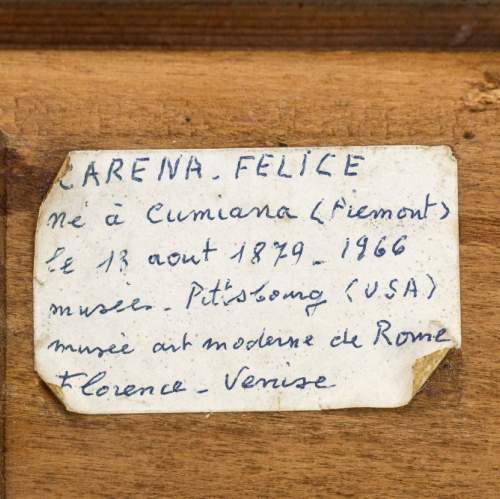 CARENA. FELICE
né à Cumiana (Piemont)
le 13 aout 1879 - 1966
musées. Pittsbourg (USA)
musée art moderne de Rome
Florence - Venise